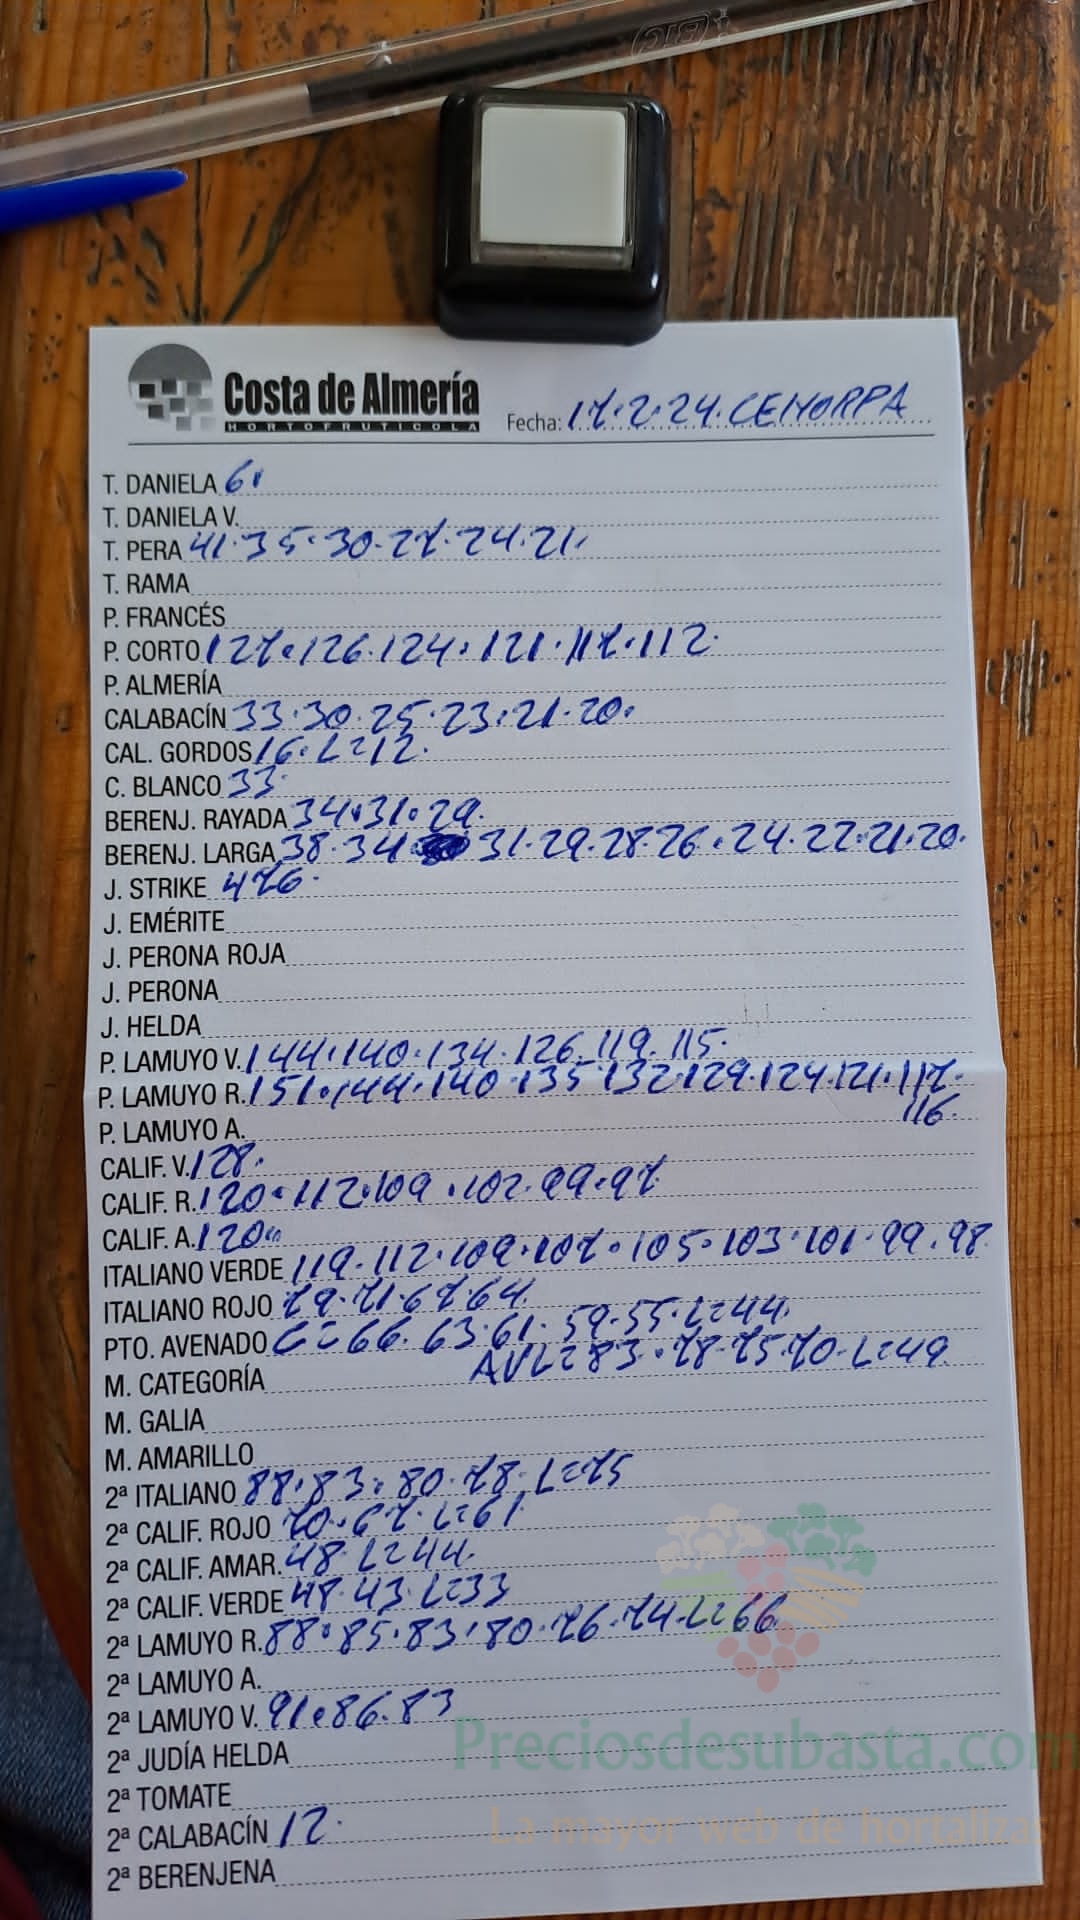 BIC
Costa de Almería
HORTOFRUTICOLA
Fecha: 17.2.24.CEHORPA
T. DANIELA 61
T. DANIELA V.
T. PERA 41.35.30.27.24.21.
T. RAMA
P. FRANCÉS
P. CORTO 127.126.124.121.117.112.
P. ALMERÍA
CALABACÍN 33.30.25.23.21.20.
CAL. GORDOS 16.L=12.
C. BLANCO 33.
BERENJ. RAYADA 34.31.29.
BERENJ. LARGA 38.34. 31.29.28.26.24.22.21.20.
J. STRIKE 476.
J. EMÉRITE
J. PERONA ROJA
J. PERONA
J. HELDA
P. LAMUYO V. 144.140.134.126.119.115.
P. LAMUYO R. 151.144.140.135.132.129.124.121.117.
116.
P. LAMUYO A.
CALIF. V. 128.
CALIF. R. 120.112.109.102.99.97
CALIF. A. 120.
ITALIANO VERDE 119.112.109.107.105.103.101.99.98
ITALIANO ROJO 79.71.67.64.
PTO. AVENADO C=66.63.61.59.55.L=44.
AVL=83.78.75.70.L=49.
M. CATEGORÍA
M. GALIA
M. AMARILLO
2ª ITALIANO 88.83.80.78.L=75
2ª CALIF. ROJO 70.67.L=61.
2ª CALIF. AMAR. 48.L=44.
2ª CALIF. VERDE 48.43.L=33
2ª LAMUYO R. 88.85.83.80.76.74.L=66
2ª LAMUYO A.
2ª LAMUYO V. 91.86.83
2ª JUDÍA HELDA
2ª TOMATE
2ª CALABACÍN 12.
2ª BERENJENA
Preciosdesubasta.com
La mayor web de hortalizas